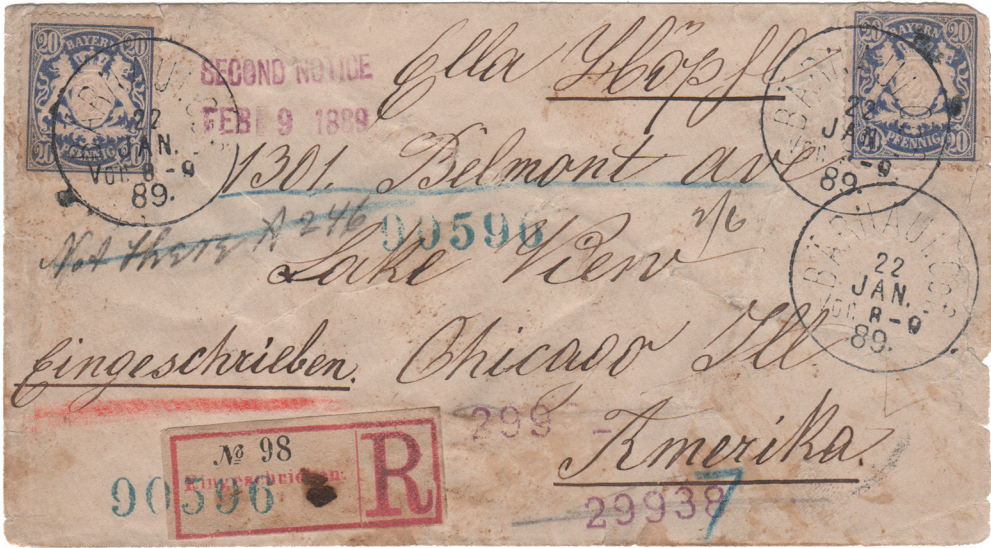 20 BAYERN 20
20 PFENNIG 20
22
JAN.
VOR. 8-9
89.
SECOND NOTICE
FEB 9 1889
Ella Höpfl
20 BAYERN 20
PFENNIG 20
BÄRNAU
22
JAN.
VOR. 8-9
89.
1301. Belmont ave
Not there A 246
90596
2/6
Lake View
BÄRNAU
22
JAN.
VOR. 8-9
89.
Eingeschrieben.
Chicago Ill
299
Amerika.
№ 98
Eingeschrieben.
R
90596
29938
7